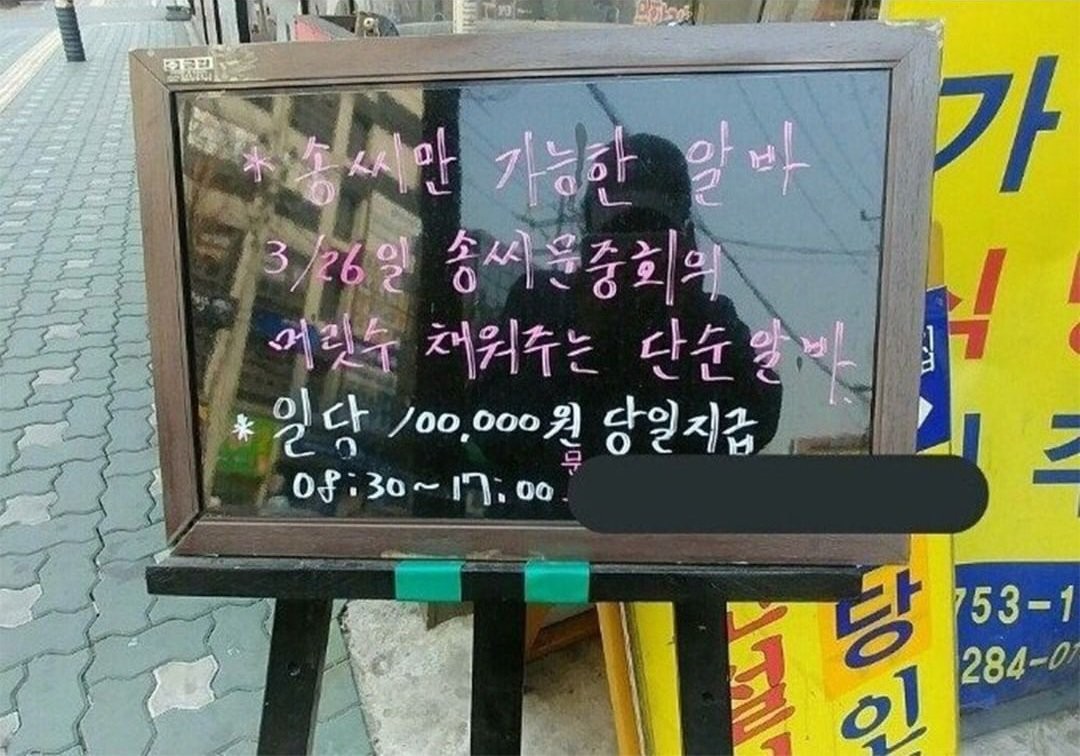 * 송씨만 가능한 알바
3/26일 송씨문중회의
머릿수 채워주는 단순알바.
* 일당 100,000원 당일지급
08:30~17:00
문
가
식
당
인
753-1
284-01